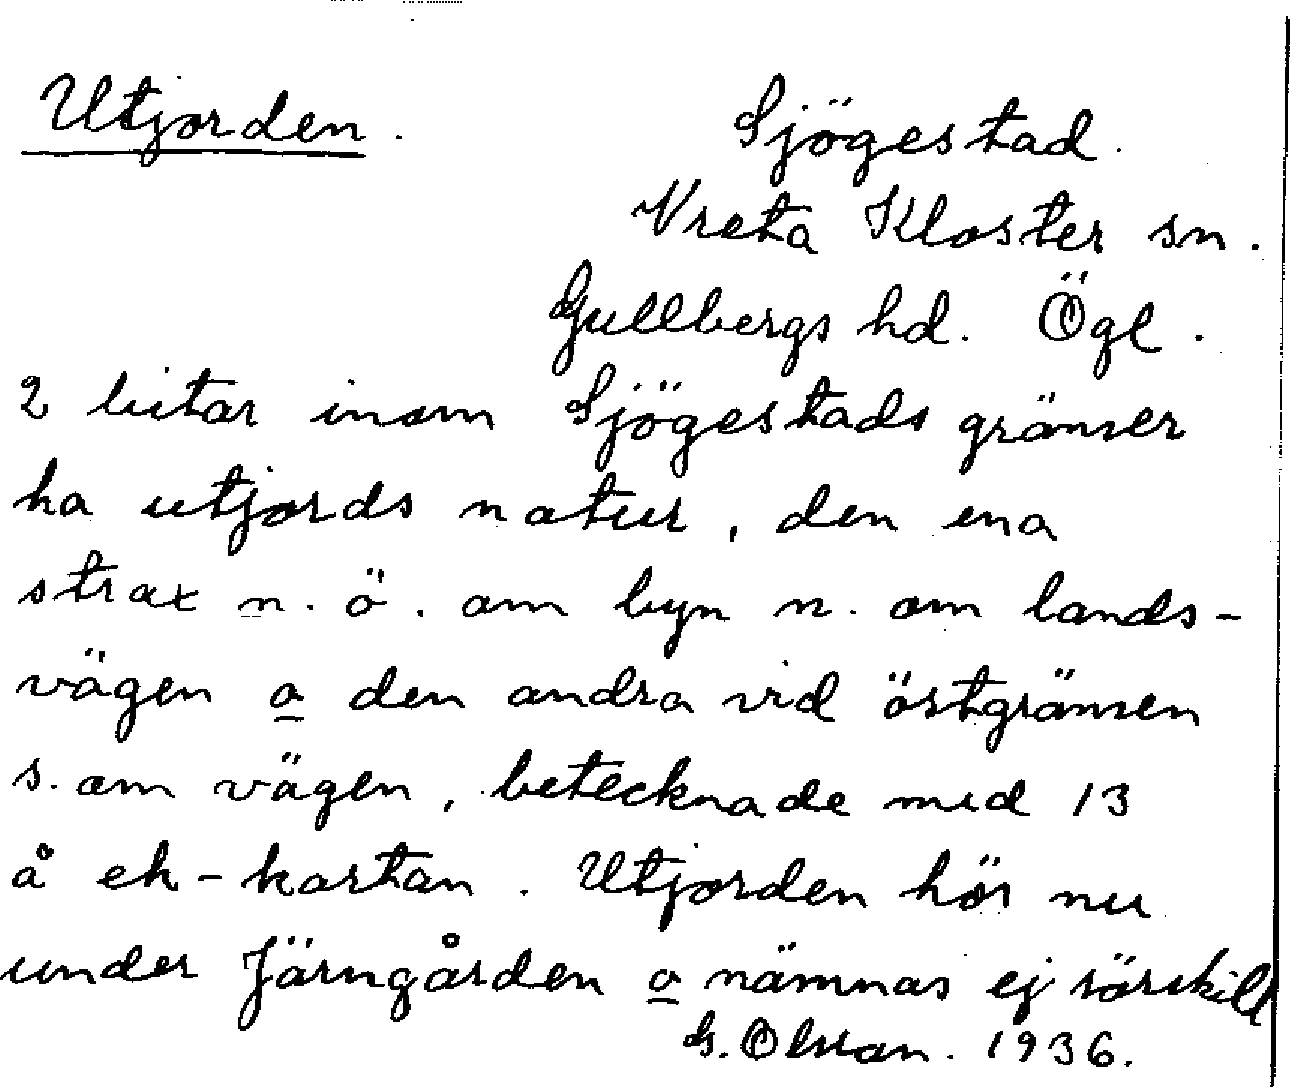 Utjorden.
Sjögestad.
Vreta Kloster sn.
Gullbergs hd. Ögl.
2 bitar inom Sjögestads gränser
ha utjords natur, den ena
strax n. ö. om byn n. om lands-
vägen o den andra vid östgränsen
s. om vägen, betecknade med 13
å ek-kartan. Utjorden hör nu
under Järngården o nämnas ej särskilt
G. Olsson. 1936.